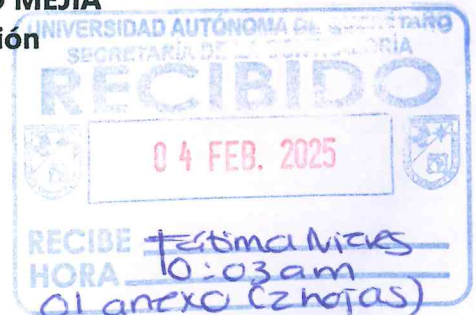 MEJIA
ión
UNIVERSIDAD AUTÓNOMA DE QUERÉTARO
SECRETARÍA DE LA CONTRALORÍA
RECIBIDO
04 FEB. 2025
RECIBE Fátima Nieves
HORA 10:03 am
01 anexo (2 hojas)